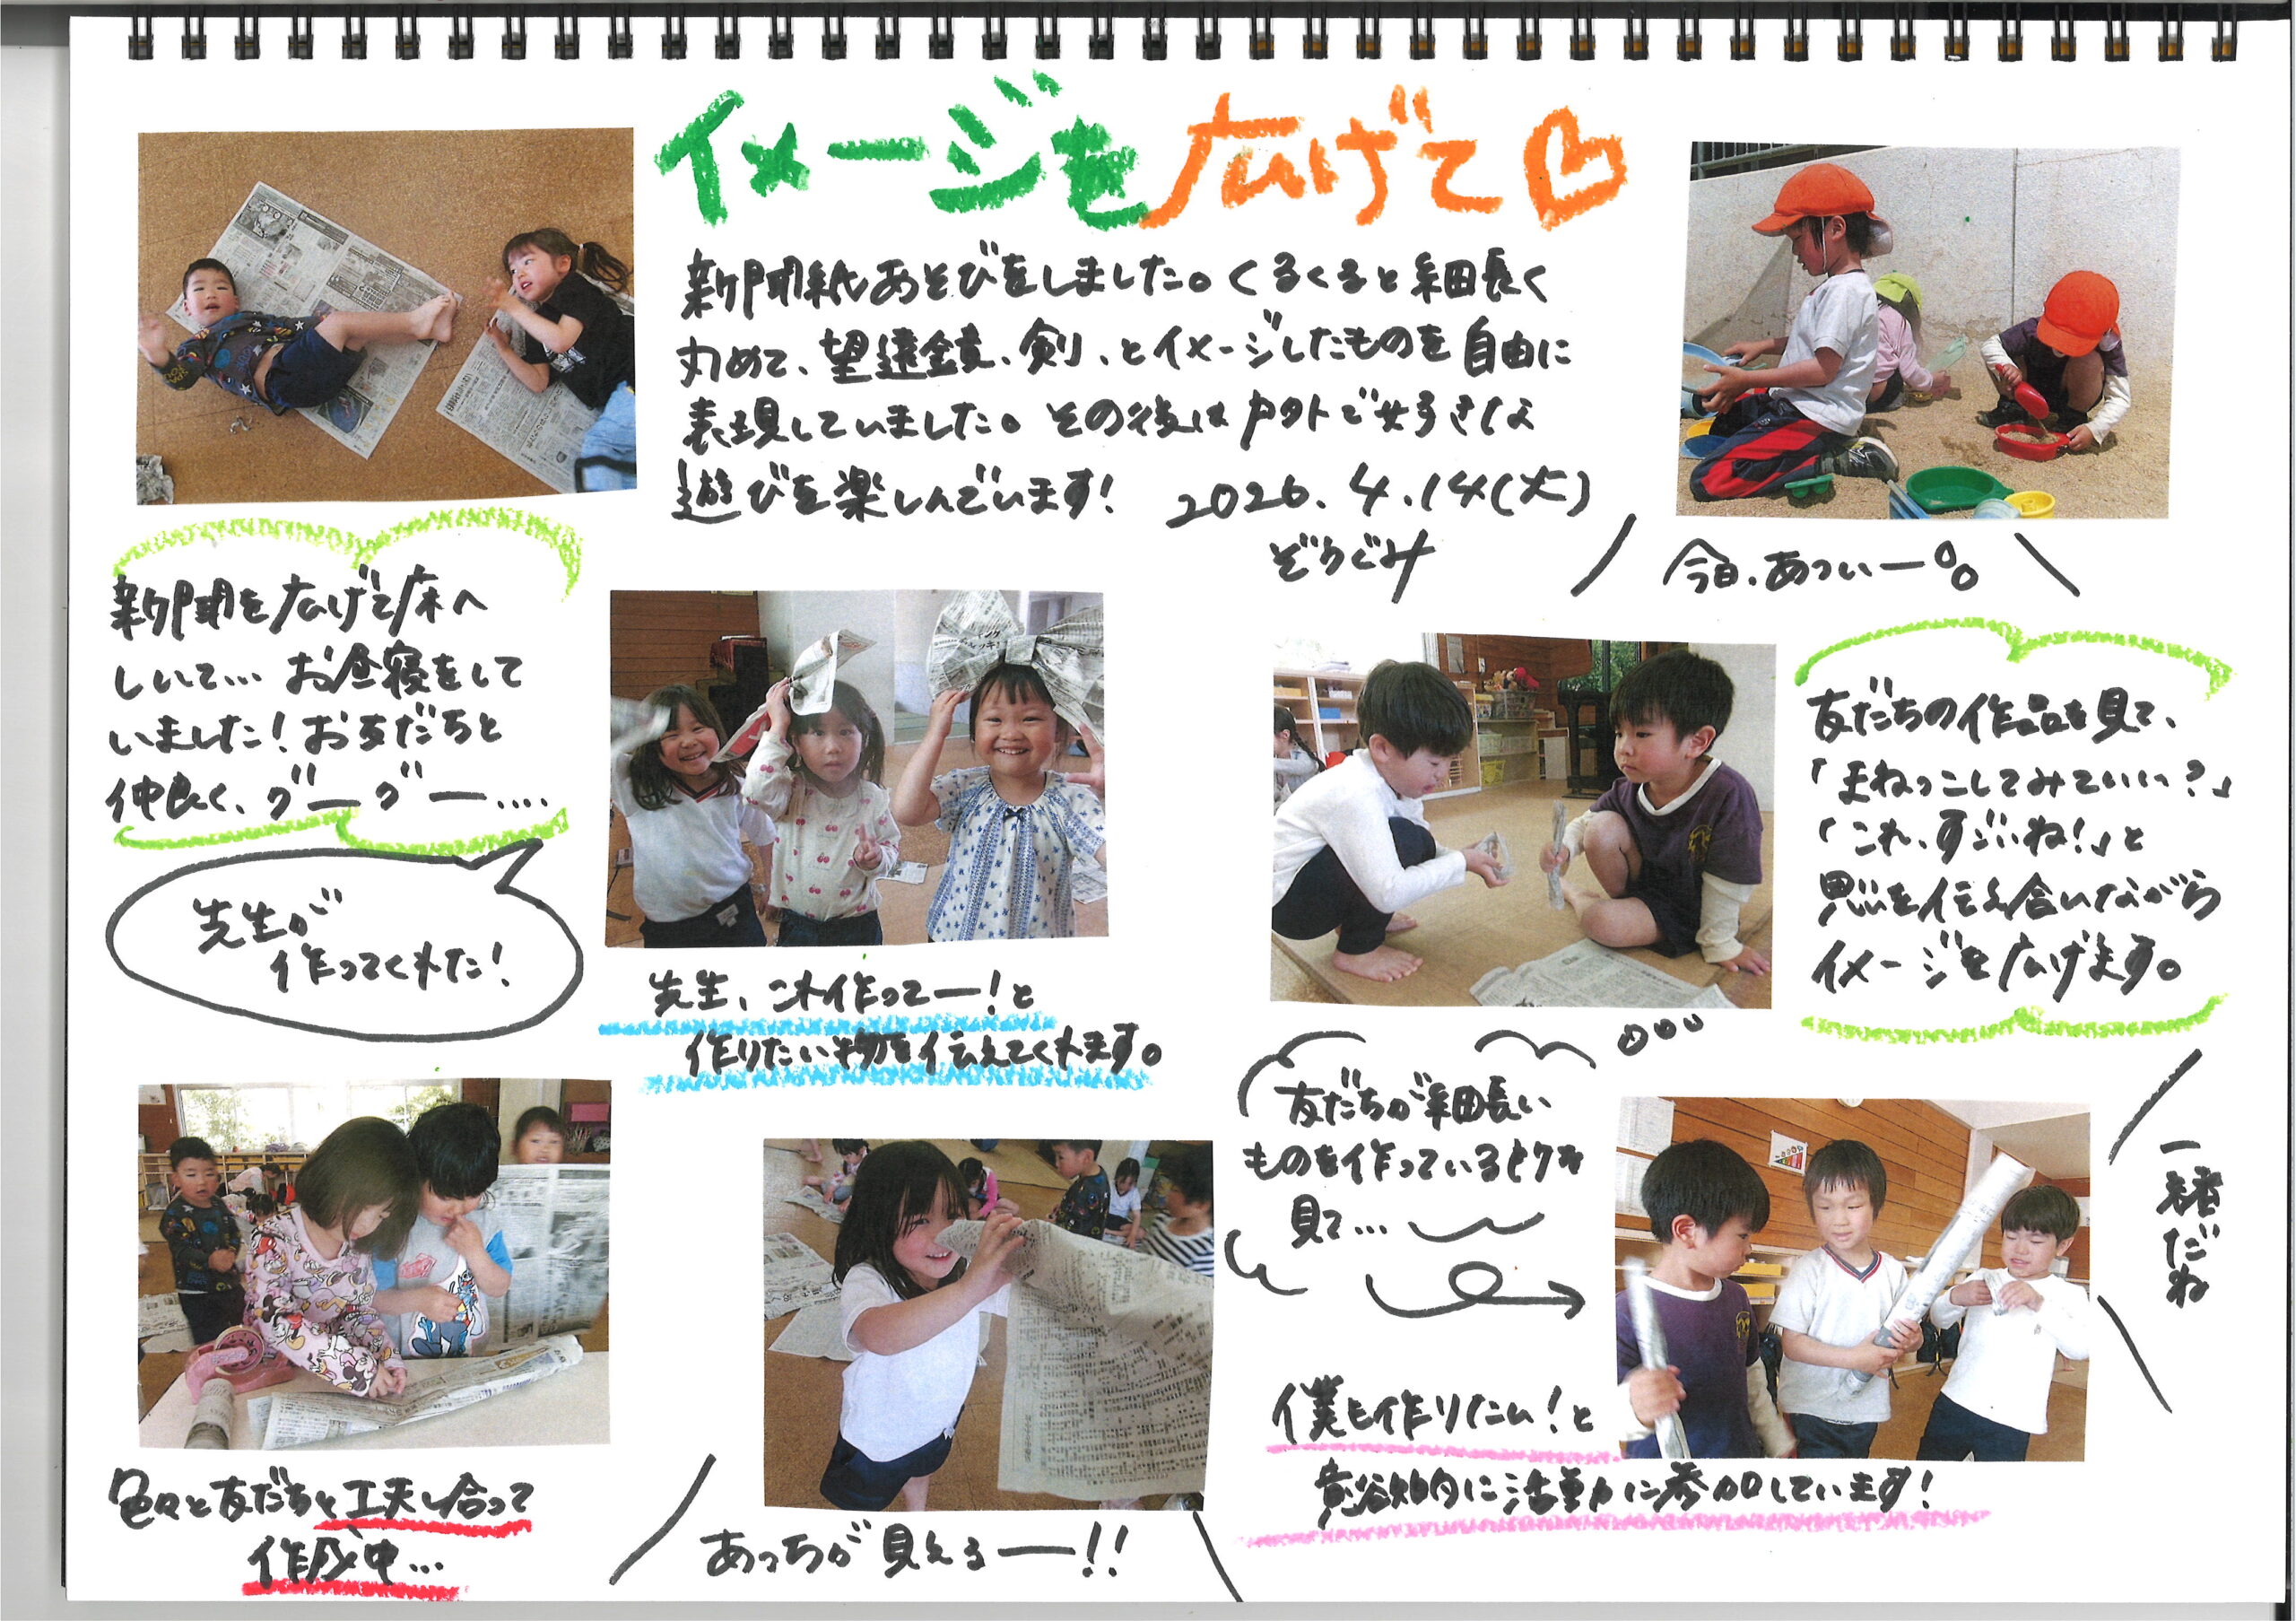 イメージを広げて♡
新聞紙あそびをしました。くるくると細長く
丸めて、望遠鏡、剣、とイメージしたものを自由に
表現していました。その後は戸外で好きな
遊びを楽しんでいます！ 2026.4.14(火)
ぞうぐみ
今日、あつい〜。
新聞を広げて床へ
しいて… お昼寝をして
いました！お友だちと
仲良く、グーグー‥‥
先生が
作ってくれた！
先生、これ作ってー！と
作りたい物を伝えてくれます。
友だちの作品を見て、
「まねっこしてみていい？」
「これ、すごいね！」と
思いを伝え合いながら
イメージを広げます。
友だちが細長い
ものを作っているトクを
見て…
一緒だね
僕も作りたい！と
意欲的に活動に参加しています！
色々と友だちと工夫し合って
作成中…
あっちが見えるー！！